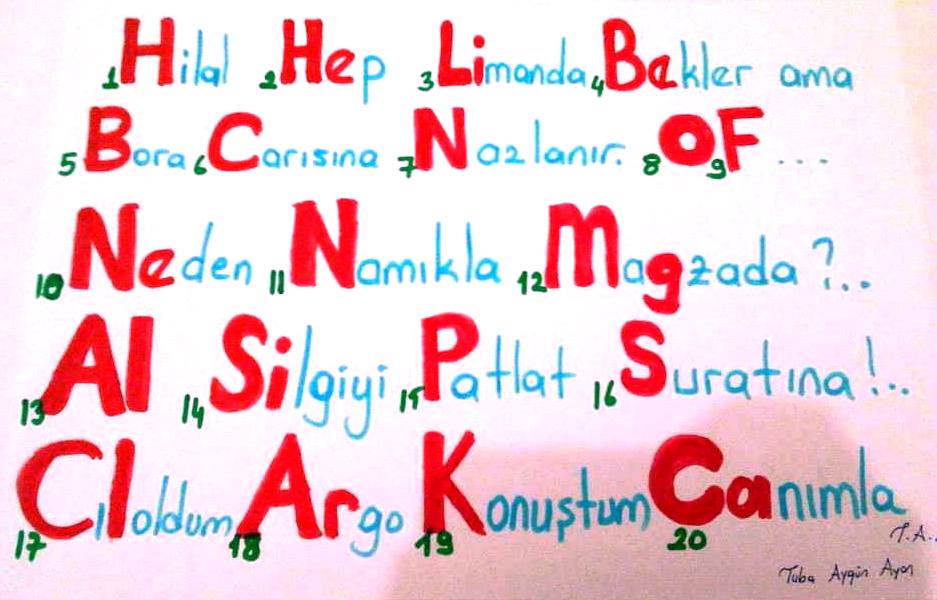 1Hilal 2Hep 3Limanda 4Bekler ama
5Bora 6Carısına 7Nazlanır. 8O9F ...
10Neden 11Namıkla 12Magzada ?..
13Al 14Silgiyi 15Patlat 16Suratına !..
17Cıloldum, 18Argo 19Konuştum, 20Canımla
T.A.
Tuba Aygün Ayan